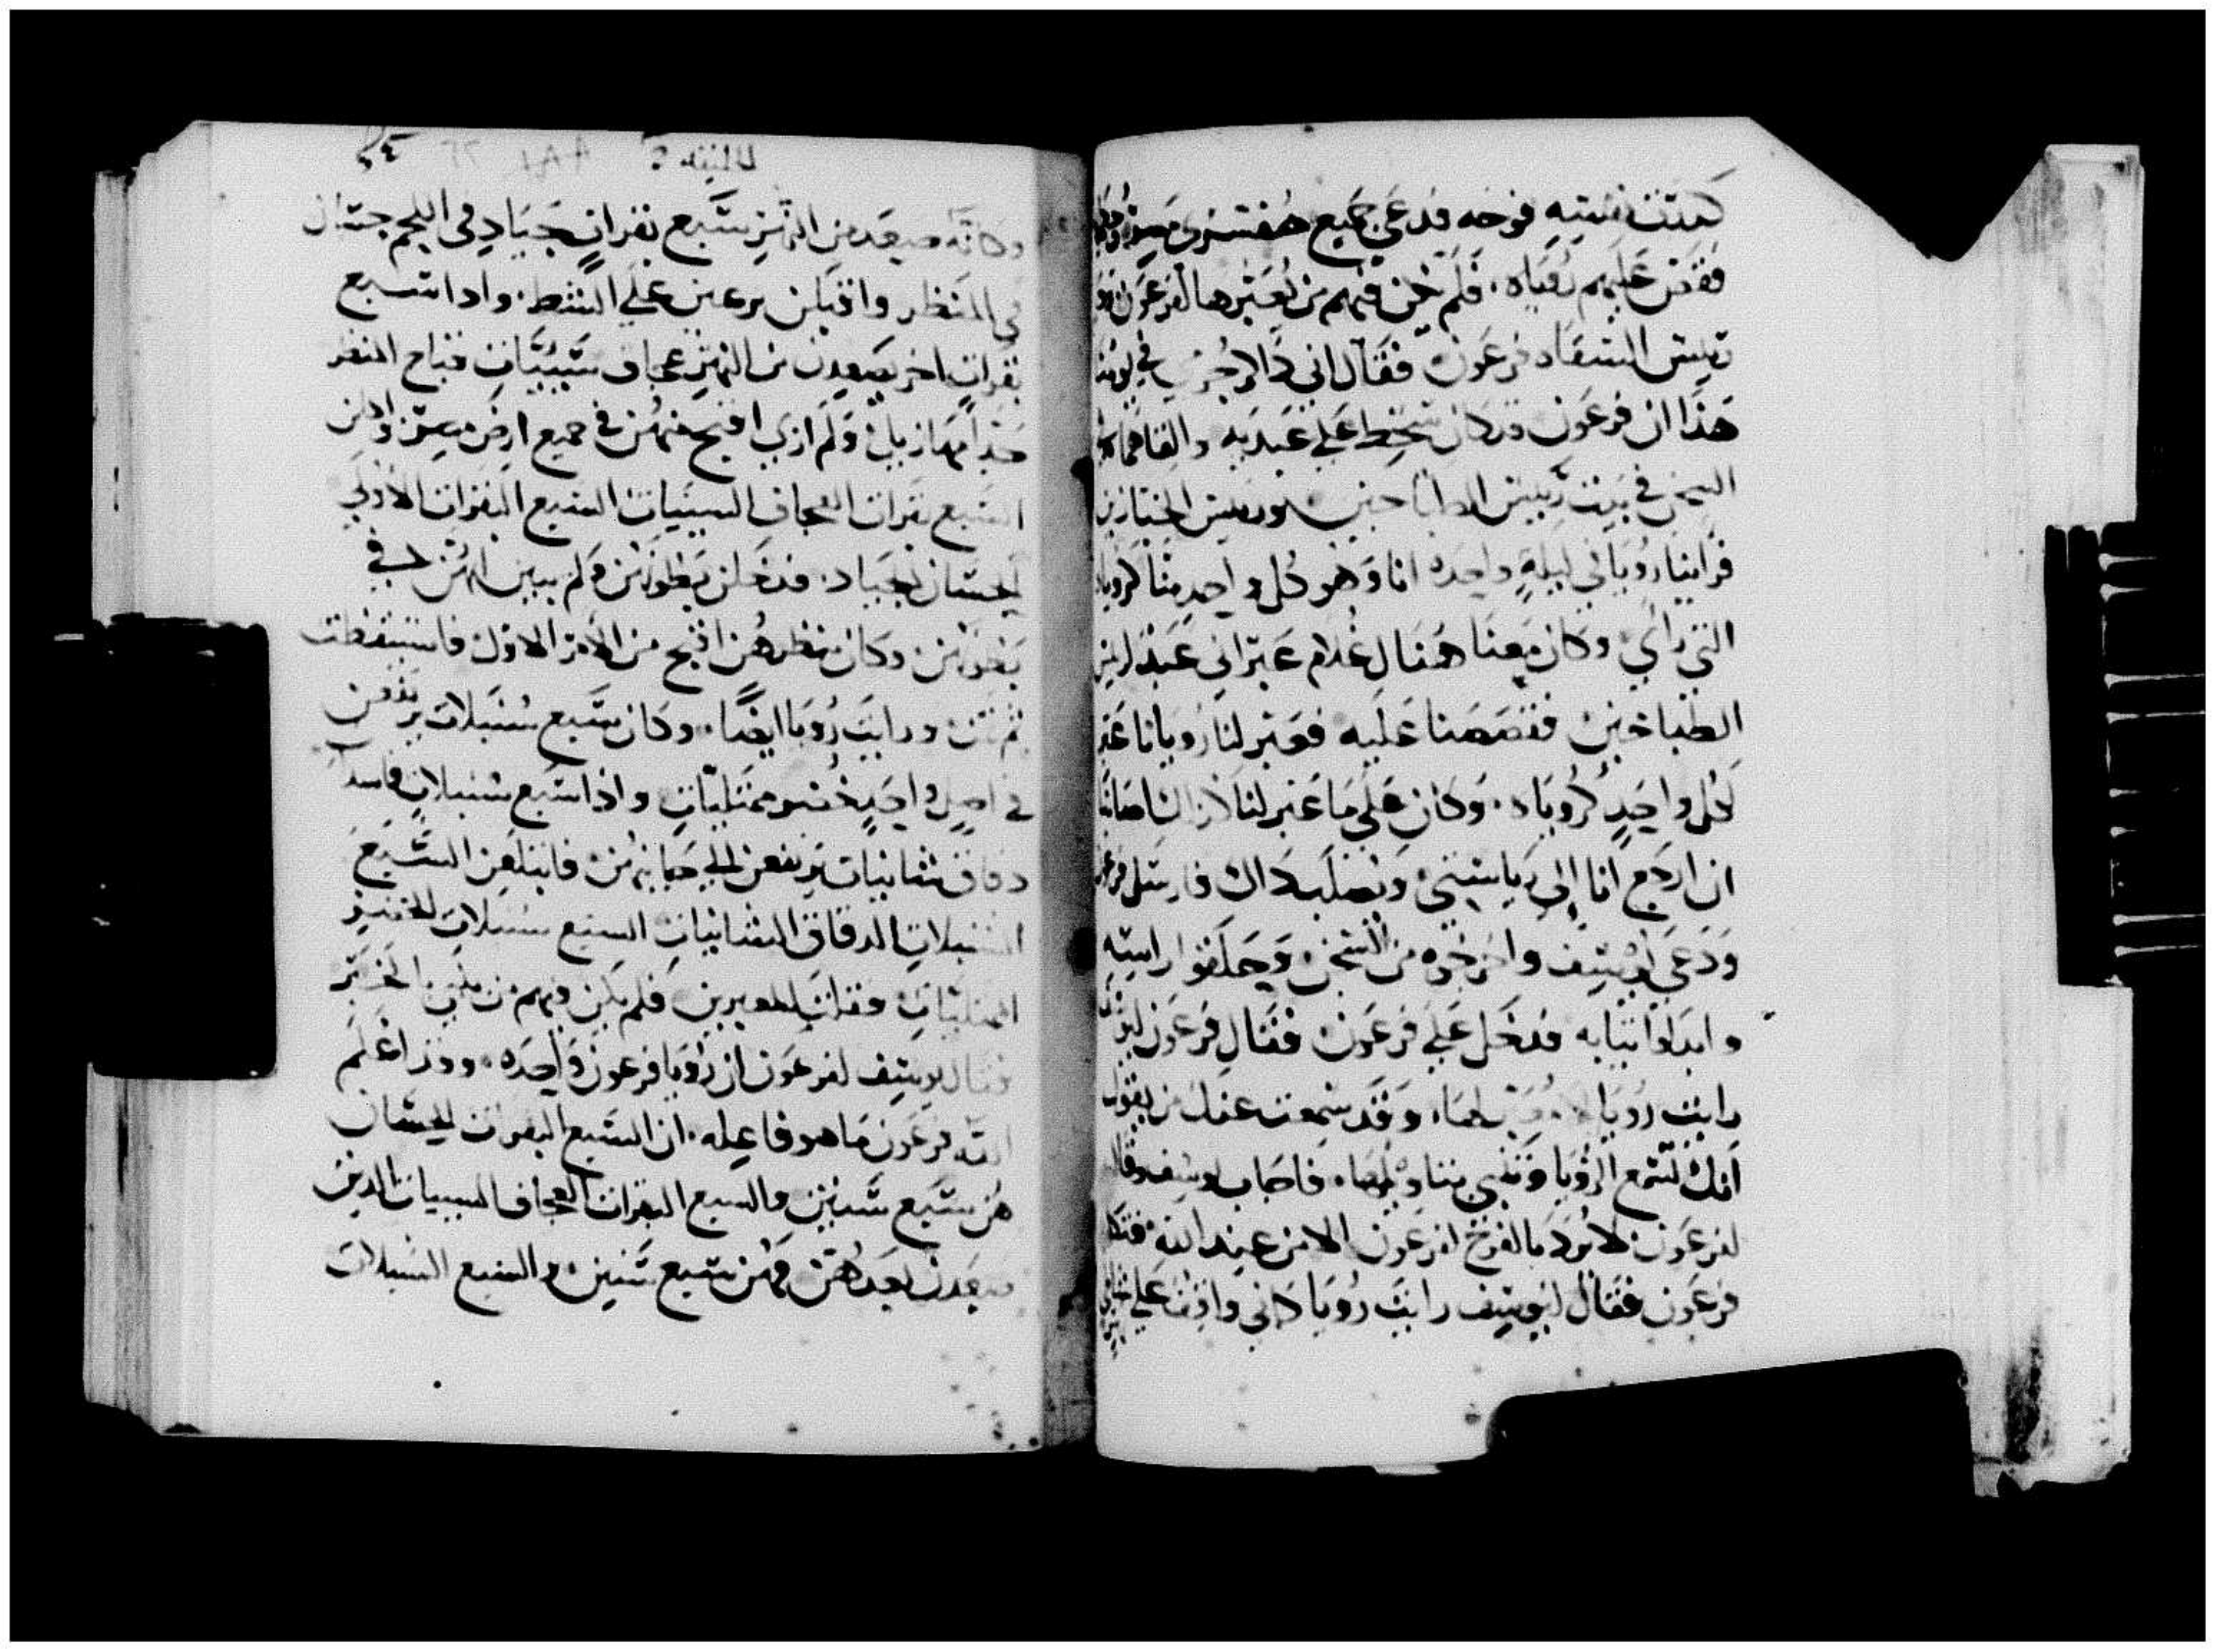 كدت نفسه فوجه فدعى جميع مفسري مصر
فقص عليهم رؤياه فلم يكن فيهم من يعبرها لفرعون
رييس السقاه فرعون فقال اني ذاكر جرمي في يومنا
هذا ان فرعون قد كان سخط على عبديه والقاهما في
السجن في بيت رييس الطباخين ورييس الخبازين
فراينا رويا في ليلة واحده انا وهو كل واحد منا كرويا
التي راي وكان معنا هناك غلام عبراني عبد لرييس
الطباخين فقصصنا عليه فعبر لنا رويانا عبر
لكل واحد كروياه وكان على ما عبر لنا كذلك اصابنا
ان ارجع انا الى رياستي ويصلب ذاك فارسل فرعون
ودعى يوسف واخرجوه من السجن وحلقوا راسه
وابدلوا ثيابه فدخل على فرعون فقال فرعون ليوسف
رايت رويا لها وقد سمعت عنك من يقول
انك تسمع الرويا وتنبي بتاويلها فاجاب يوسف وقال
لفرعون لا يرد بالفرج لفرعون الا من عند الله
فرعون فقال ليوسف رايت رويا كاني واقف على شاطي
للسنه
وكانه صعد من النهر سبع بقرات جياد في اللحم حسان
في المنظر واقبلن يرعين على الشط واذا سبع
بقرات اخر يصعدن من النهر عجاف سييات قباح المنظر
جدا مهازيل ولم ار اقبح منهن في جميع ارض مصر واكلن
السبع بقرات العجاف السييات السبع البقرات الاولى
الحسان الجياد فدخلن بطونهن ولم يبين انهن في
بطونهن وكان منظرهن اقبح من الامر الاول فاستيقظت
ثم نمت ورايت رويا ايضا وكان سبع سنبلات يرتفعن
في اصل واحد خضر ممتليات واذا سبع سنبلات فاسده
دقاق يرتفعن الى جانبهن فابتلعن السبع
السنبلات الدقاق السبع سنبلات الخضر
الممتليات فقلت للمعبرين فلم يكن فيهم من يبين الخبر
فقال يوسف لفرعون ان رويا فرعون واحده وقد اعلم
الله فرعون ما هو فاعله ان السبع البقرات الحسان
هن سبع سنين والسبع البقرات العجاف السييات الذين
صعدن بعدهن فهن سبع سنين والسبع السنبلات